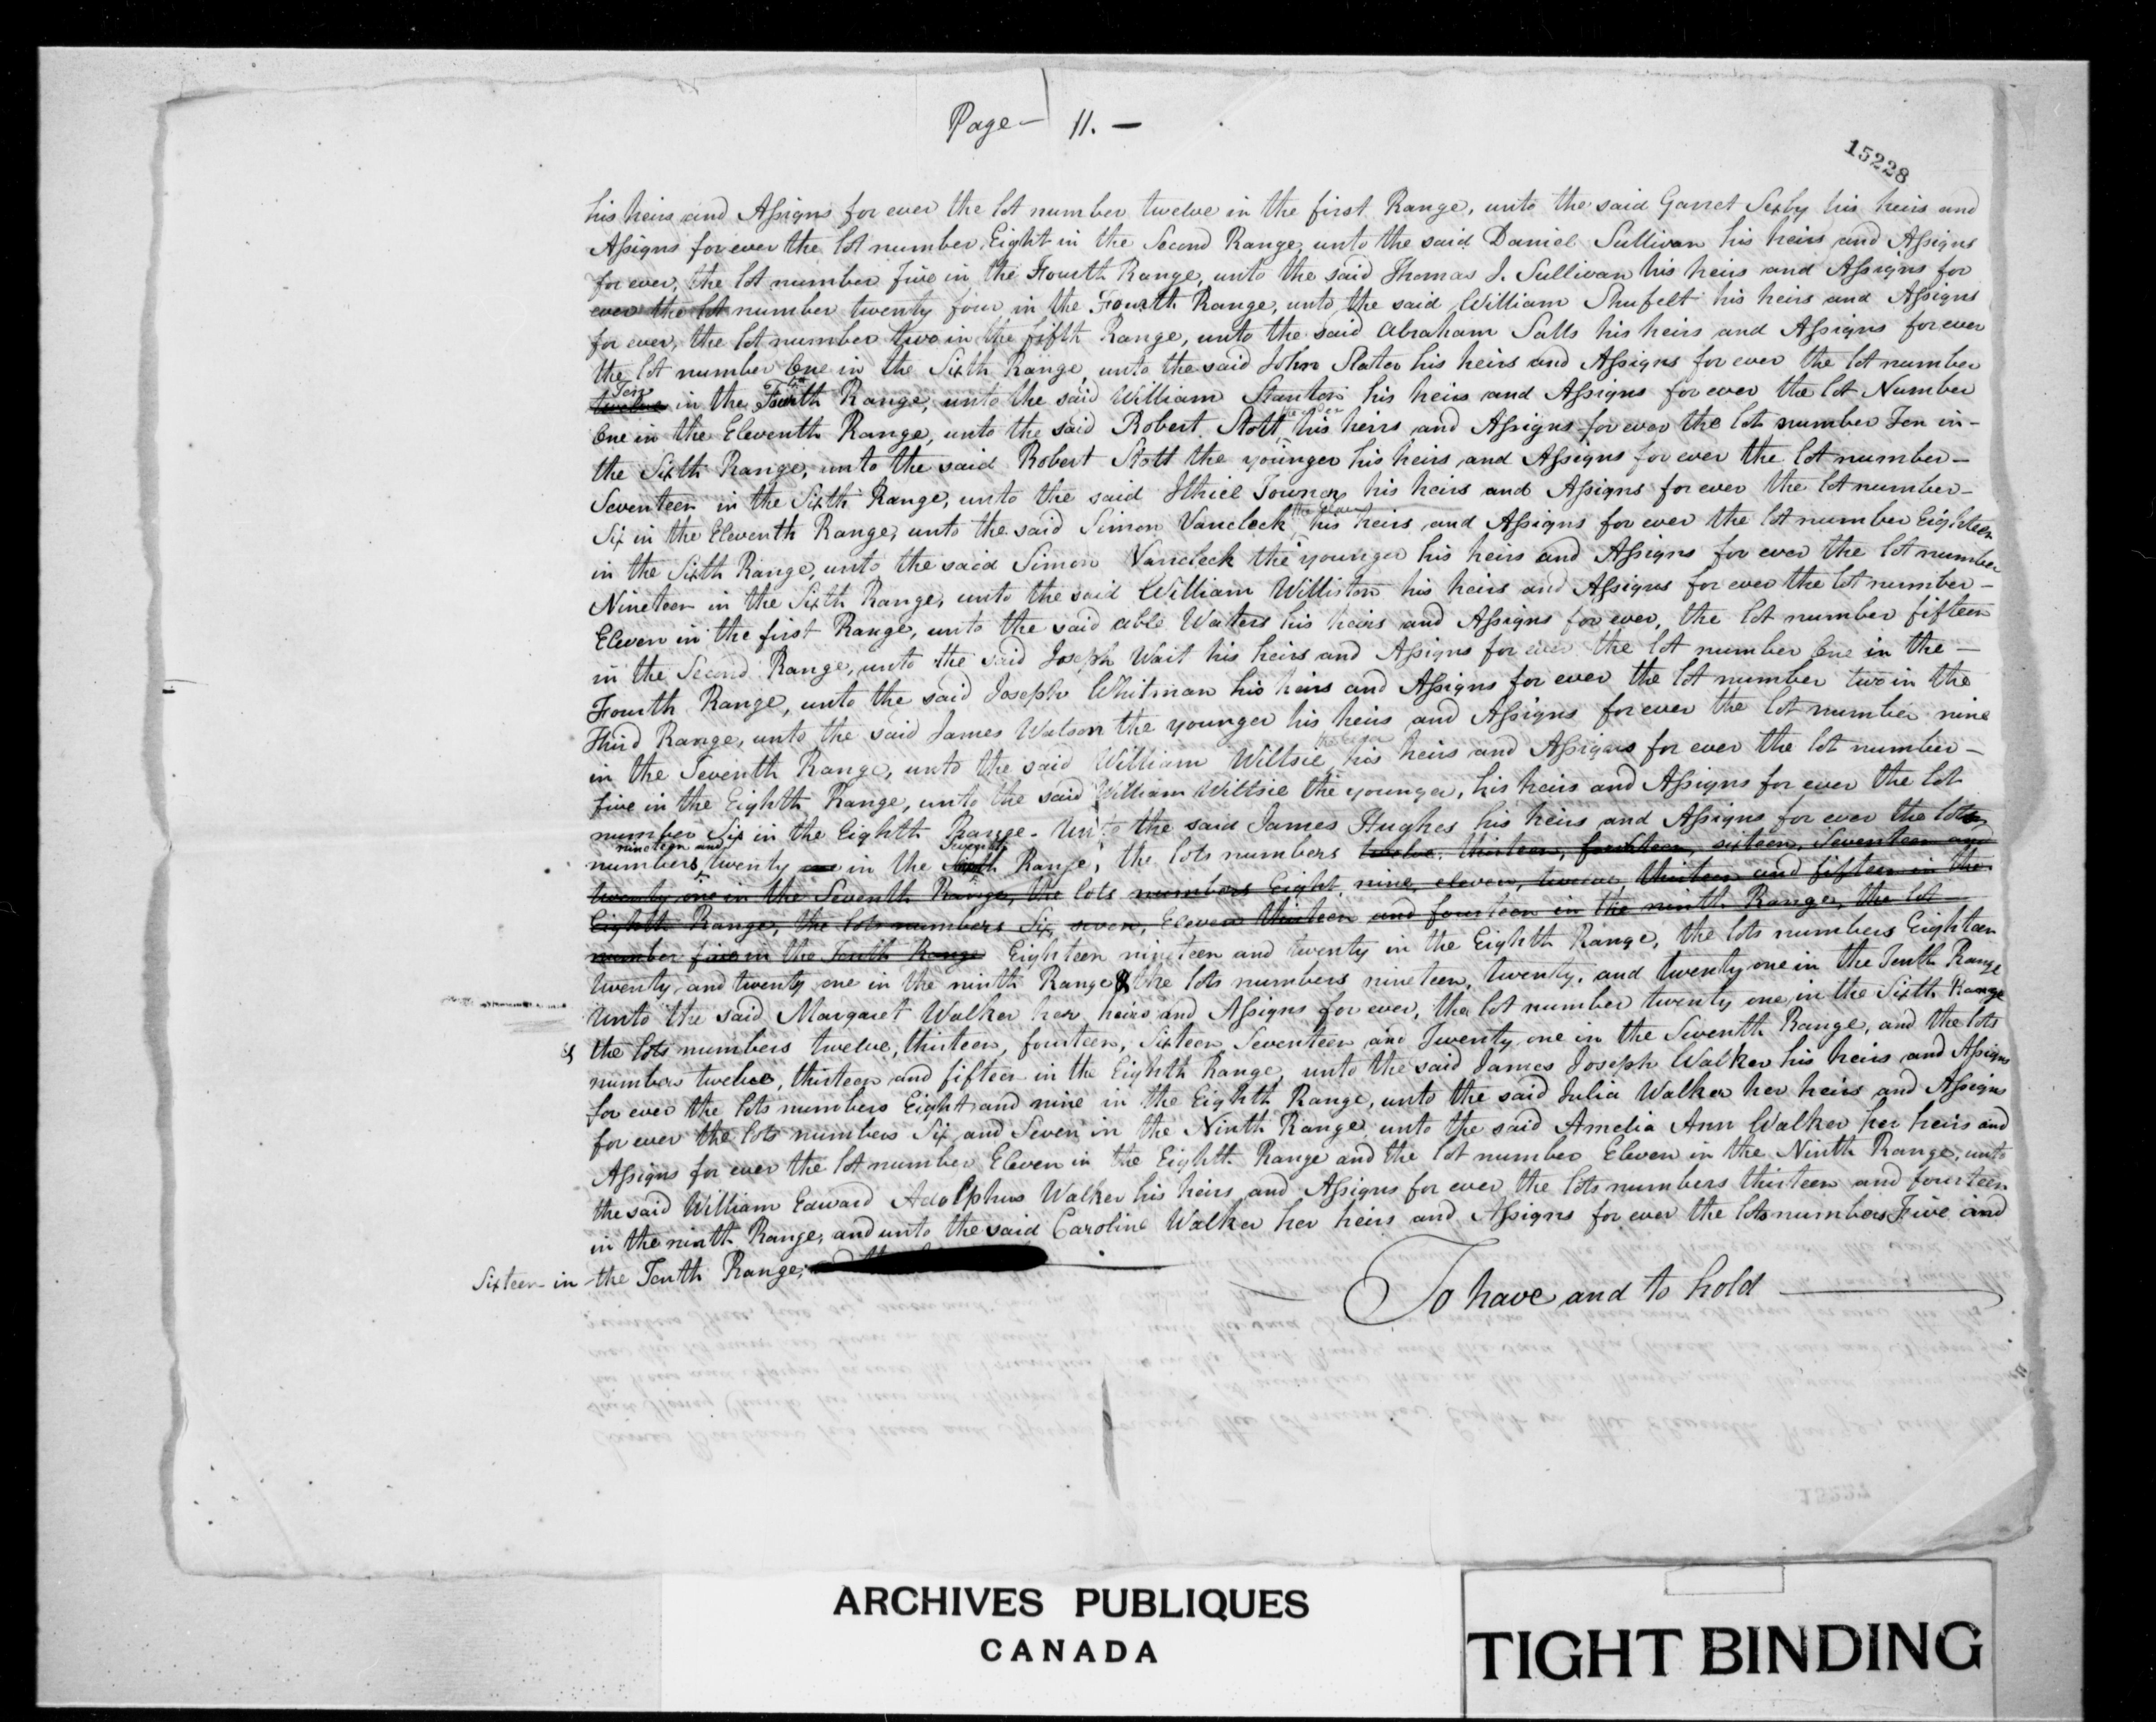 Page - 11. -
15228
his heirs and Assigns for ever the lot number twelve in the first Range, unto the said Garret Sixby his heirs and
Assigns for ever the lot number Eight in the Second Range, unto the said Daniel Sullivan his heirs and Assigns
for ever, the lot number Five in the Fourth Range, unto the said Thomas J. Sullivan his heirs and Assigns for
ever the lot number twenty four in the Fourth Range, unto the said William Shufelt his heirs and Assigns
for ever, the lot number two in the fifth Range, unto the said Abraham Salls his heirs and Assigns for ever
the lot number One in the Sixth Range, unto the said John Slator his heirs and Assigns for ever the lot number
Ten
twelve in the Range, unto the said William Stanton his heirs and Assigns for ever the lot Number
the elder
One in the Eleventh Range, unto the said Robert Stott his heirs and Assigns for ever the lot number Ten in -
the Sixth Range, unto the said Robert Stott the younger his heirs and Assigns for ever the lot number -
Seventeen in the Sixth Range, unto the said Ithiel Towner his heirs and Assigns for ever the lot number -
the elder
Six in the Eleventh Range, unto the said Simon Vancleck his heirs and Assigns for ever the lot number Eighteen
in the Sixth Range, unto the said Simon Vancleck the younger his heirs and Assigns for ever the lot number
Nineteen in the Sixth Range, unto the said William Williston his heirs and Assigns for ever the lot number -
Eleven in the first Range, unto the said able Waters his heirs and Assigns for ever, the lot number fifteen
in the Second Range, unto the said Joseph Wait his heirs and Assigns for ever the lot number One in the -
Fourth Range, unto the said Joseph Whitman his heirs and Assigns for ever the lot number two in the
Third Range, unto the said James Watson the younger his heirs and Assigns for ever the lot number nine
the elder
in the Seventh Range, unto the said William Wiltsie his heirs and Assigns for ever the lot number -
five in the Eighth Range, unto the said William Wiltsie the younger, his heirs and Assigns for ever the lot
number Six in the Eighth Range - Unto the said James Hughes his heirs and Assigns for ever the lots
nineteen and Seventh
numbers twenty in the Sixth Range, the lots numbers twelve, thirteen, fourteen, sixteen, Seventeen and
twenty one in the Seventh Range, the lots numbers Eight, nine, eleven, twelve, thirteen and fifteen in the
Eighth Range, the lots numbers Six, seven, Eleven thirteen and fourteen in the ninth Range, the lot
number five in the Tenth Range Eighteen nineteen and twenty in the Eighth Range, the lots numbers Eighteen
twenty and twenty one in the ninth Range & the lots numbers nineteen, twenty, and twenty one in the Tenth Range
Unto the said Margaret Walker her heirs and Assigns for ever, the lot number twenty one in the Sixth Range
& the lots numbers twelve, thirteen, fourteen, Sixteen Seventeen and Twenty one in the Seventh Range, and the lots
numbers twelve, thirteen and fifteen in the Eighth Range, unto the said James Joseph Walker his heirs and Assigns
for ever the lots numbers Eight and nine in the Eighth Range, unto the said Julia Walker her heirs and Assigns
for ever the lots numbers Six and Seven in the Ninth Range unto the said Amelia Ann Walker her heirs and
Assigns for ever the lot number Eleven in the Eighth Range and the lot number Eleven in the Ninth Range, unto
the said William Edward Adolphus Walker his heirs and Assigns for ever the lots numbers thirteen and fourteen
in the ninth Range, and unto the said Caroline Walker her heirs and Assigns for ever the lots numbers Five and
Sixteen in the Tenth Range,
To have and to hold
ARCHIVES PUBLIQUES
CANADA
TIGHT BINDING